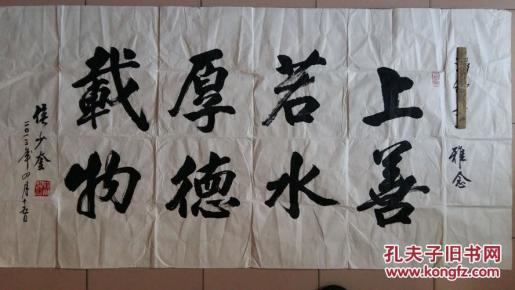 雅念
上善
若水
厚德
載物
侯少奎
二〇一三年四月十五日
孔夫子旧书网
www.kongfz.com